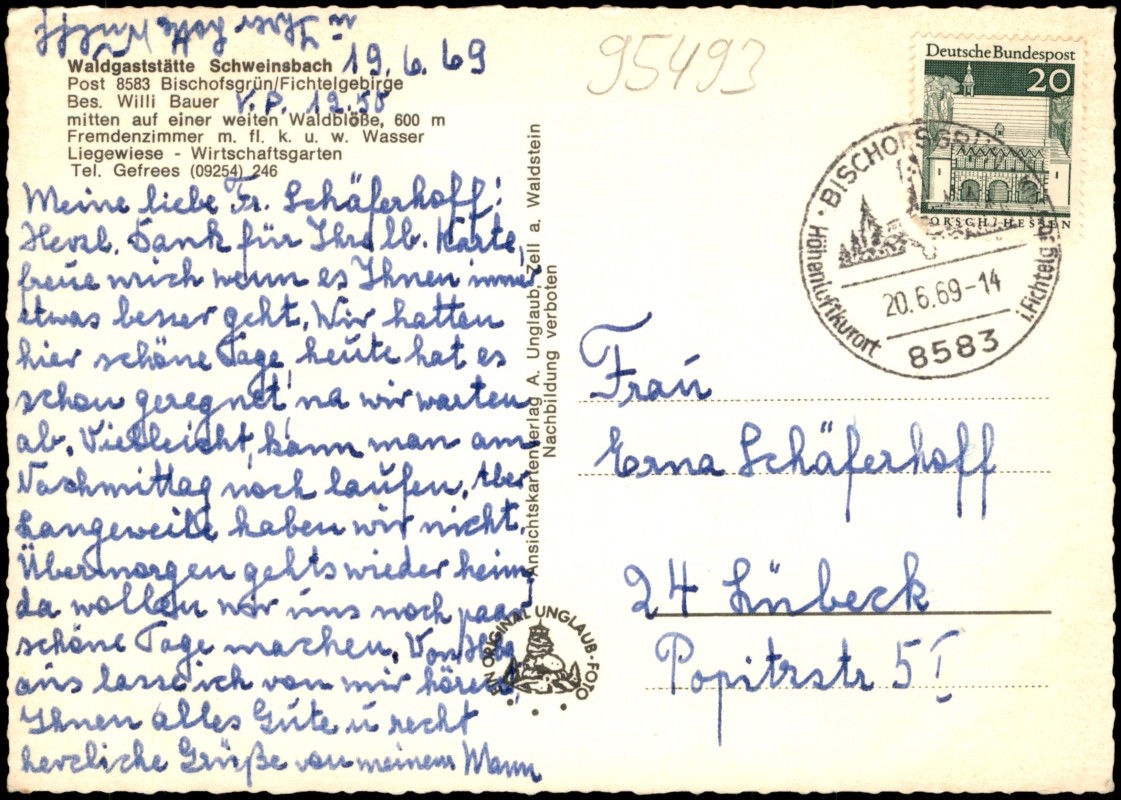 19.6.69
95493
Waldgaststätte Schweinsbach
Post 8583 Bischofsgrün/Fichtelgebirge
Bes. Willi Bauer
mitten auf einer weiten Waldblöße, 600 m
Fremdenzimmer m. fl. k. u. w. Wasser
Liegewiese - Wirtschaftsgarten
Tel. Gefrees (09254) 246
Meine liebe Fr. Schäferhoff!
Herzl. Dank für Ihre lb. Karte,
freue mich wenn es Ihnen immer
etwas besser geht. Wir hatten
hier schöne Tage, heute hat es
schon geregnet, na wir warten
ab. Vielleicht kann man am
Nachmittag noch laufen. Aber
Langeweile haben wir nicht.
Übermorgen gehts wieder heim
da wollen wir uns noch paar
schöne Tage machen. Von
aus lasse ich von mir hören,
Ihnen alles Gute u recht
herzliche Grüße von meinem Mann
u Ihrer
Ansichtskartenverlag A. Unglaub, Zell a. Waldstein
Nachbildung verboten
EIN ORIGINAL UNGLAUB-FOTO
Deutsche Bundespost
20
LORSCH/HESSEN
BISCHOFSGRÜN
Höhenluftkurort
i. Fichtelgebirge
20.6.69-14
8583
Frau
Erna Schäferhoff
24 Lübeck
Popitzstr 5 I